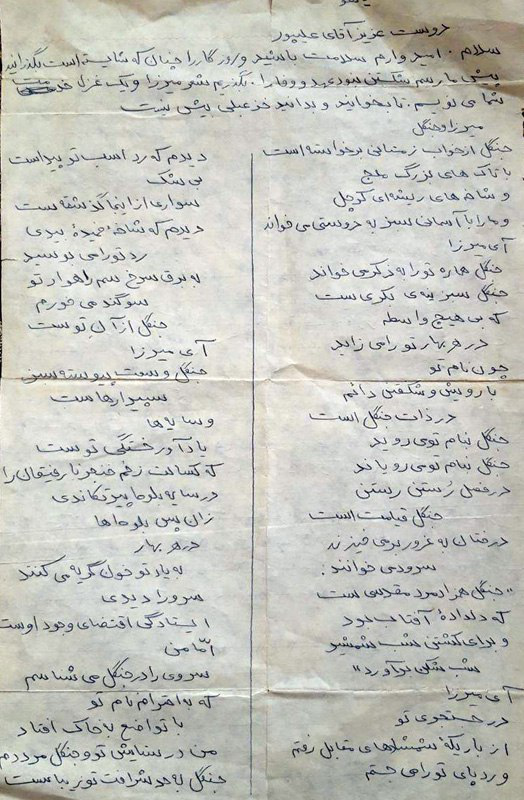 دوست عزیز آقای علیپور
سلام. امیدوارم سلامت باشید و روزگار را چنان که شایسته است بگذرانید
پیش ما رسم شکستن نبود عهد و وفا را. بگذریم شعر میرزا و یک غزل
شما می نویسم. تا بخوانید و بدانید خزعبلی بیش نیست
میرزا و جنگل
جنگل از خواب زمستانی برخواسته است
با تاک های بزرگ ملج
و شاخه های ریشه ای کرچل
و ما را با آسانی سبز به دوستی می خواند
آی میرزا
جنگل هماره تو را به ذکر می خواند
جنگل سبزینه ی بکری ست
که بی هیچ واسطه
در هر بهار تو را می زاید
چون نام تو
با رویش و شکفتن دائم
در ذات جنگل است
جنگل بنام تو می روید
جنگل بنام تو می رویاند
در فصل رُستن رستن
جنگل قیامت است
درختان به غرور برمی خیزند
سرود می خوانند:
«جنگل هوادمرد مقدسی ست
که دلدادهٔ آفتاب بود
و برای کشتن شب شمشیر
شب شکن برآورد»
آی میرزا
در جستجوی تو
از باریکهٔ شمشادهای مقابل رفتم
و ردپای تو را می جستم
دیدم که رد اسب تو پیداست
بی شک
سواری از اینجا گذشته ست
دیدم که شاخهٔ خمیدهٔ بیدی
رد تو را می بوسید
به برق سرخ سم راهوار تو
سوگند می خورم
جنگل از آنِ توست
آی میرزا
جنگل وسعت پیوسته سبز
سپیدارهاست
و سایه ها
یادآور خستگی توست
که کسالت زخم خنجر نارفیقان را
در سایه بلوط پیر تکاندی
زان پس بلوط ها
در هر بهار
به یاد تو خون گریه می کنند
سرو را دیدی
ایستادگی اقتضای وجود اوست
امّا من
سروی را در جنگل می شناسم
که به احترام نام تو
با تواضع به خاک افتاد
من در ستایش تو و جنگل مرددم
جنگل به حد شرافت تو زیباست